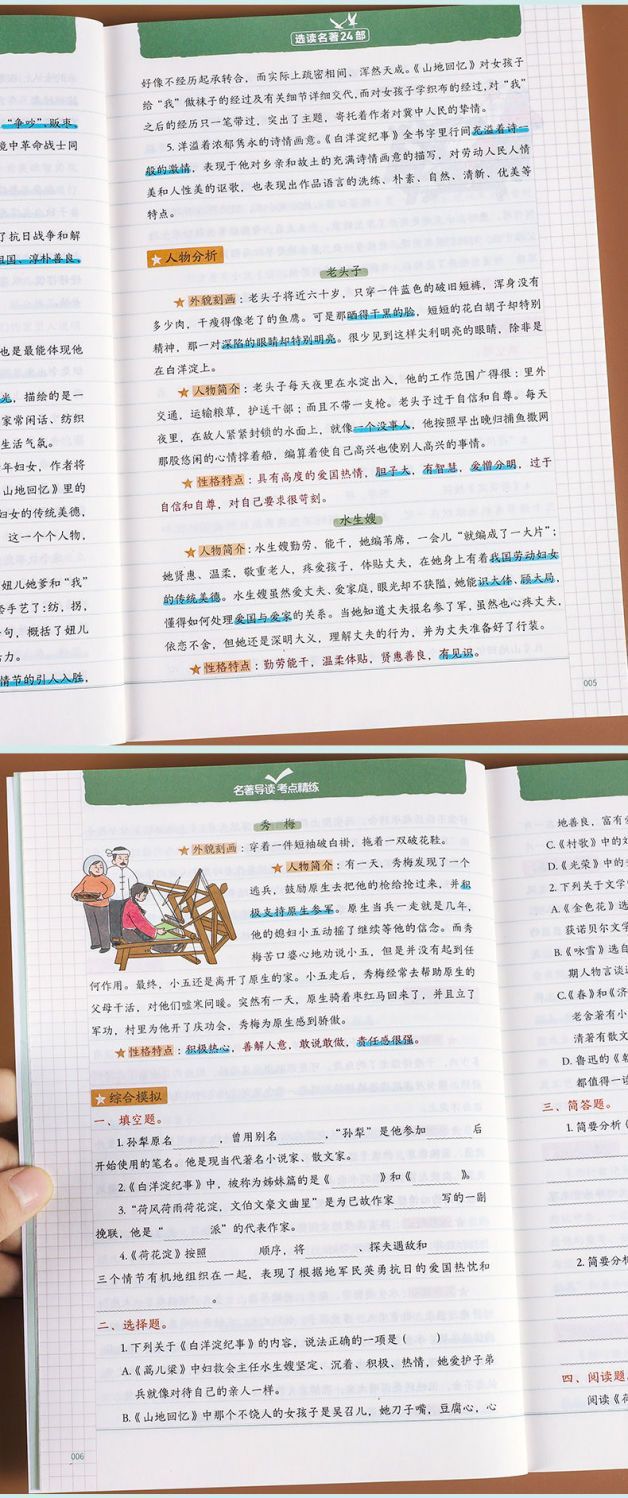 选读名著24部
"争吵"、贩枣、
境中革命战士同
了抗日战争和解
祖国、淳朴善良、
也是最能体现他
光，描绘的是一
家常闲话、纺织
生活气氛。
年妇女，作者将
山地回忆》里的
妇女的传统美德，
这一个个人物，
妞儿她爹和"我"
些手艺了：纺，拐，
句，概括了妞儿
活力。
情节的引人入胜，
好像不经历起承转合，而实际上疏密相间、浑然天成。《山地回忆》对女孩子
给"我"做袜子的经过及有关细节详细交代，而对女孩子学织布的经过，对"我"
之后的经历只一笔带过，突出了主题，寄托着作者对冀中人民的挚情。
5.洋溢着浓郁隽永的诗情画意。《白洋淀纪事》全书字里行间充溢着诗一
般的激情，表现于他对乡亲和故土的充满诗情画意的描写，对劳动人民人情
美和人性美的讴歌，也表现出作品语言的洗练、朴素、自然、清新、优美等
特点。
人物分析
老头子
外貌刻画：老头子将近六十岁，只穿一件蓝色的破旧短裤，浑身没有
多少肉，干瘦得像老了的鱼鹰。可是那晒得干黑的脸，短短的花白胡子却特别
精神，那一对深陷的眼睛却特别明亮。很少见到这样尖利明亮的眼睛，除非是
在白洋淀上。
人物简介：老头子每天夜里在水淀出入，他的工作范围广得很：里外
交通，运输粮草，护送干部；而且不带一支枪。老头子过于自信和自尊。每天
夜里，在敌人紧紧封锁的水面上，就像一个没事人，他按照早出晚归捕鱼撒网
那股悠闲的心情撑着船，编算着使自己高兴也使别人高兴的事情。
性格特点：具有高度的爱国热情，胆子大，有智慧，爱憎分明，过于
自信和自尊，对自己要求很苛刻。
水生嫂
人物简介：水生嫂勤劳、能干，她编苇席，一会儿"就编成了一大片"；
她贤惠、温柔，敬重老人，疼爱孩子，体贴丈夫，在她身上有着我国劳动妇女
的传统美德。水生嫂虽然爱丈夫、爱家庭，眼光却不狭隘，她能识大体、顾大局，
懂得如何处理爱国与爱家的关系。当她知道丈夫报名参了军，虽然也心疼丈夫，
依恋不舍，但她还是深明大义，理解丈夫的行为，并为丈夫准备好了行装。
性格特点：勤劳能干，温柔体贴，贤惠善良，有见识。
005
名著导读 考点精练
秀 梅
外貌刻画：穿着一件短袖破白褂，拖着一双破花鞋。
人物简介：有一天，秀梅发现了一个
逃兵，鼓励原生去把他的枪给抢过来，并积
极支持原生参军。原生当兵一走就是几年，
他的媳妇小五动摇了继续等他的信念。而秀
梅苦口婆心地劝说小五，但是并没有起到任
何作用。最终，小五还是离开了原生的家。小五走后，秀梅经常去帮助原生的
父母干活，对他们嘘寒问暖。突然有一天，原生骑着枣红马回来了，并且立了
军功，村里为他开了庆功会，秀梅为原生感到骄傲。
性格特点：积极热心，善解人意，敢说敢做，责任感很强。
综合模拟
一、填空题。
1.孙犁原名 ，曾用别名 ，"孙犁"是他参加 后
开始使用的笔名。他是现当代著名小说家、散文家。
2.《白洋淀纪事》中，被称为姊妹篇的是《 》和《 》。
3."荷风荷雨荷花淀，文伯文豪文曲星"是为已故作家 写的一副
挽联，他是" 派"的代表作家。
4.《荷花淀》按照 顺序，将 、探夫遇敌和
三个情节有机地组织在一起，表现了根据地军民英勇抗日的爱国热忱和
。
二、选择题。
1.下列关于《白洋淀纪事》的内容，说法正确的一项是（ ）
A.《蒿儿梁》中妇救会主任水生嫂坚定、沉着、积极、热情，她爱护子弟
兵就像对待自己的亲人一样。
B.《山地回忆》中那个不饶人的女孩子是吴召儿，她刀子嘴，豆腐心，心
006
地善良，富有爱
C.《村歌》中的
D.《光荣》中的
2.下列关于文学
A.《金色花》选
获诺贝尔文学
B.《咏雪》选自
期人物言谈
C.《春》和《济
老舍著有小
清著有散文
D.鲁迅的《朝
都值得一读
三、简答题。
1.简要分析《
2.简要分析
四、阅读题
阅读《荷